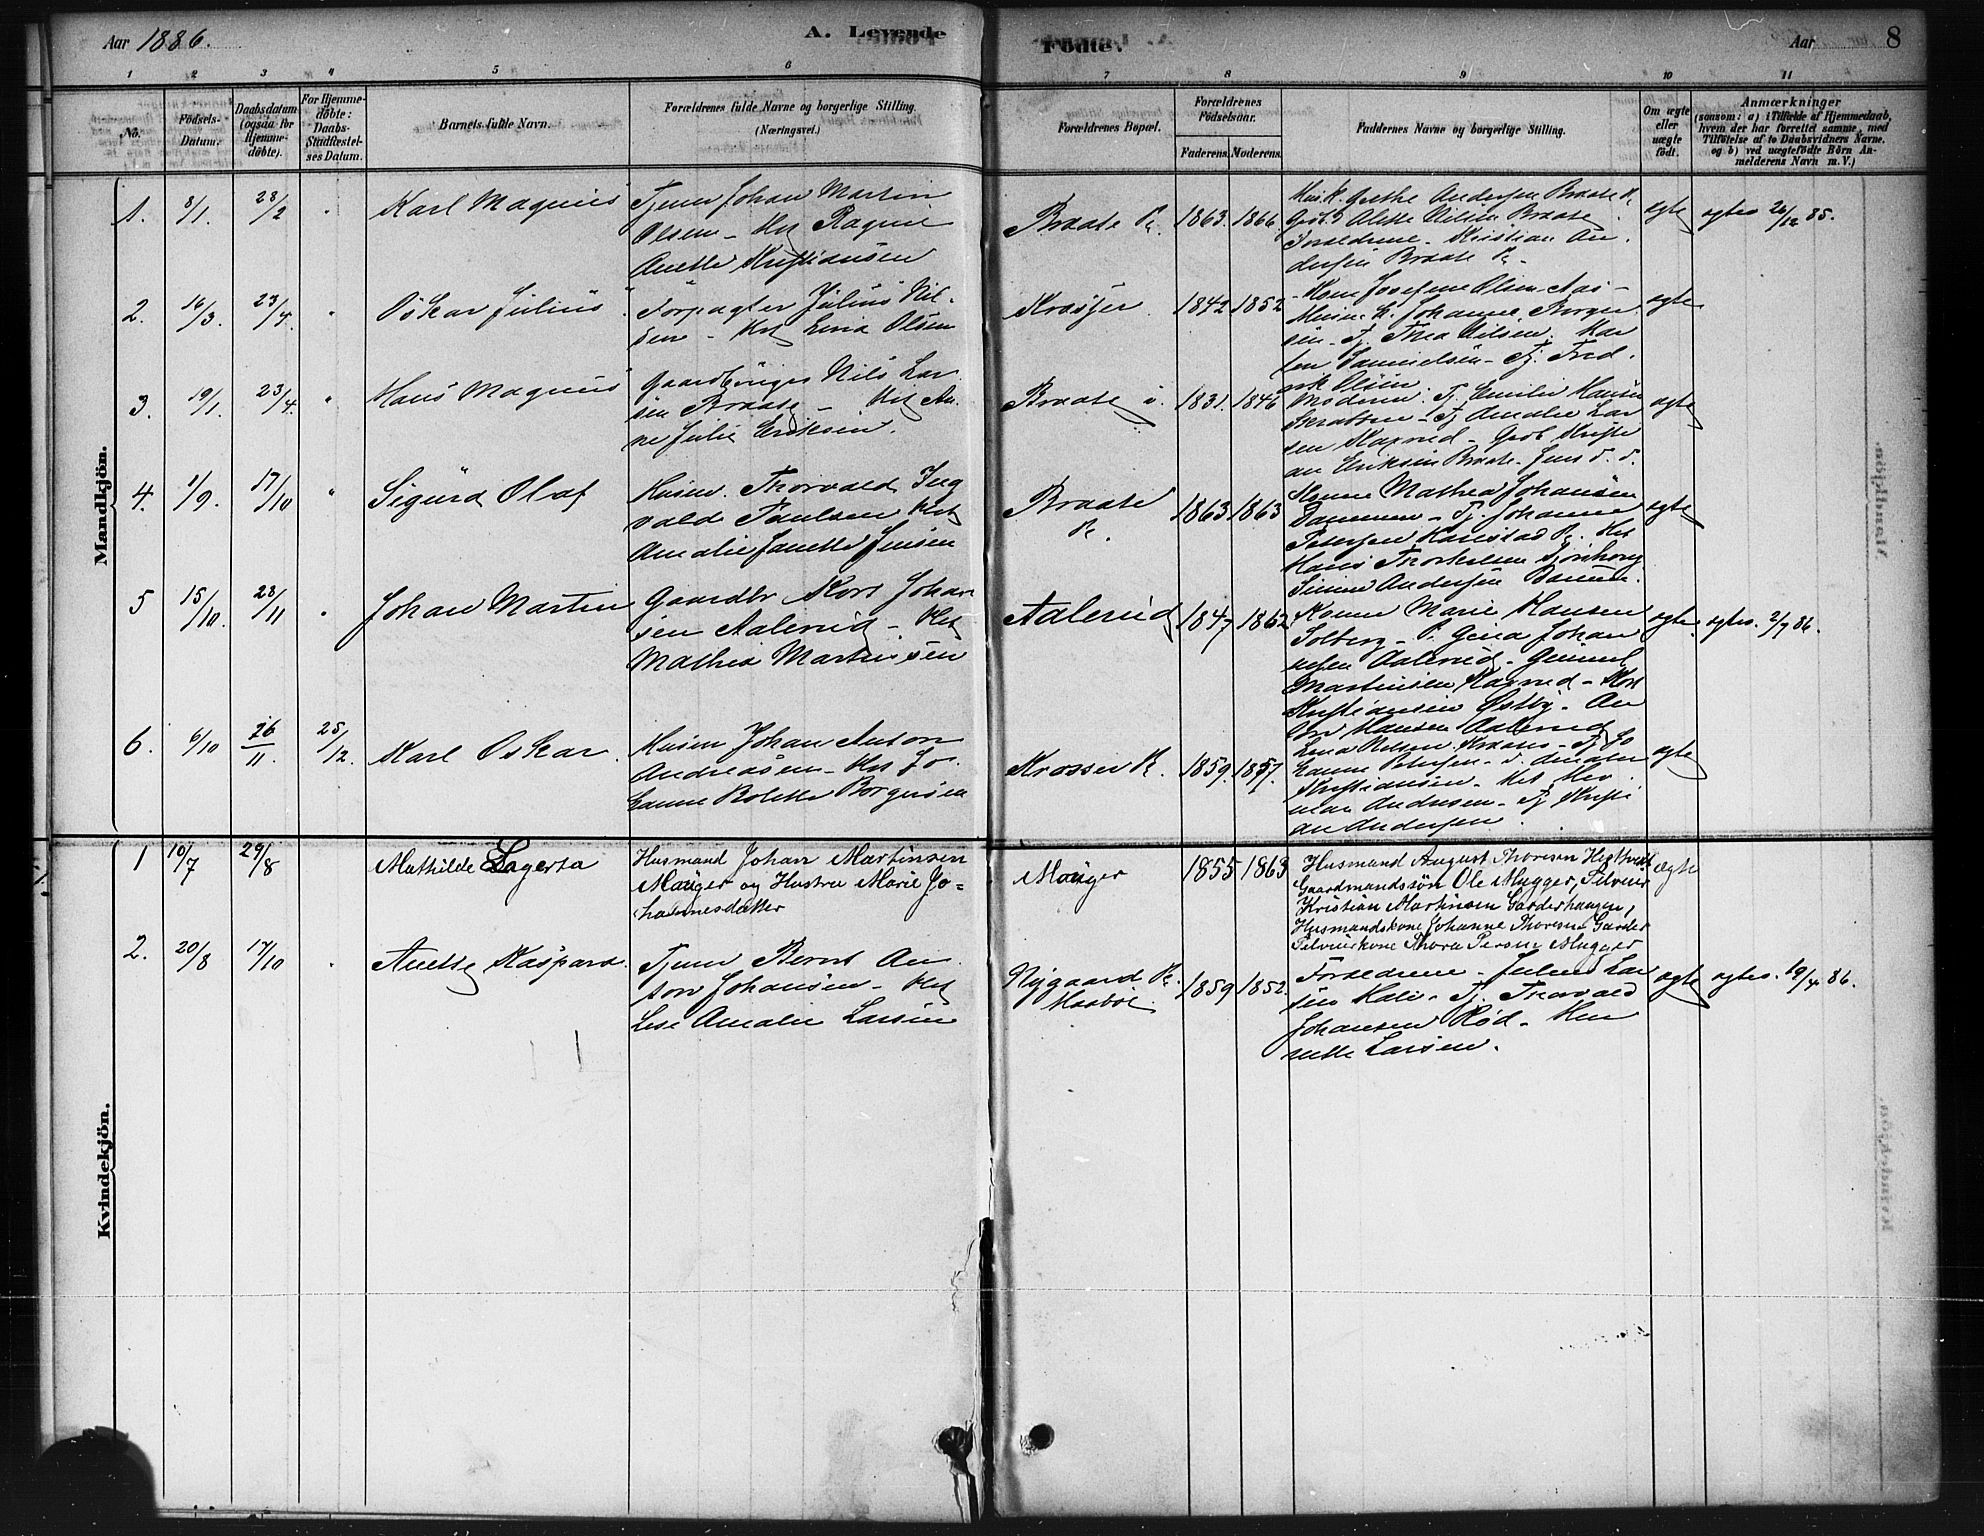 Aar 1886.
A. Levende
Fødte.
Aar
8
1 2 3 4 5 6 7 8 9 10 11
No.
Fødsels-
Datum.
Daabsdatum
(ogsaa for
Hjemme-
døbte).
For Hjemme-
døbte:
Daabs-
Stadfæstel-
ses Datum.
Barnets fulde Navn.
Forældrenes fulde Navne og borgerlige Stilling.
(Næringsvei.)
Forældrenes Bopæl.
Forældrenes
Fødselsaar.
Faderens. Moderens.
Faddernes Navne og borgerlige Stilling.
Om ægte
eller
uægte
født.
Anmærkninger
(saasom: a) i Tilfælde af Hjemmedaab,
hvem der har forrettet samme, med
Tilføielse af to Daabsvidners Navne,
og b) ved uægtefødte Børn An-
melderens Navn m. V.)
Mandkjön.
1. 8/1. 28/2 Karl Magnus
Tjener Johan Martin
Olsen - Hst Ragne
Anette Kristiansen
Braate P. 1863. 1866
Grethe Andersen Braate
Braate
Forældrene - Kristian An-
dersen Braate
egte egtev. 26/12 85.
2. 16/3. 23/4. Oskar Julius
Forpagter Julius Nil-
sen - Hst Lina Olsen
Krosser 1842 1852
Kone Josefine Olsen Aas -
Johanne Borger
sen - Tj. Thea Nilsen. Mar
ten Samuelsen - Tj. Fred-
rik Olsen.
egte
3. 19/1. 23/4. Hans Magnus
Gaardbruger Nils Lar
sen Braate - Hst An-
ne Julie Eriksen.
Braate 1831. 1846
Moderen. Tj. Emilie Hansen
Tj Amalie Lar
sen Kaxrud - Kristi
an Eriksen Braate - Jens
egte
4. 1/9. 17/10 Sigurd Olaf
Husm. Thorvald Ing
vald Paulsen Hst
Amalie Janette Jensen
Braate
P. 1863 1863
Kone Mathea Johansen
Tj. Johanne
Petersen
Hans Thorkelsen
Andersen
egte
5 15/10. 28/11 Johan Martin
Gaardbr Johan
sen Aalerud - Hst
Mathea Martinsen
Aalerud 1847 1862
Kone Marie Hansen
Solberg - P. Gina Johan
nesen Aalerud -
Martinsen Kaxrud -
Kristiansen Østby - An
Hansen Aalerud
egte egtev. 2/7 86.
6. 6/10 26/11. 25/12. Karl Oskar.
Husm Johan Anton
Andreassen - Hst Jo-
hanne Bolette Borgersen
Krosser P. 1859. 1857.
Lena Nilsen Krosser - Tj Jo
hanne Petersen -
Kristiansen -
Andresen - Tj Kristi
an Andersen
egte
Kvindekjön.
1 10/7 29/8 Mathilde Lagerta
Husmand Johan Martinsen
Mauger og Hustru Marie Jo-
hannesdatter
Mauger 1855 1863
Husmand August Thoresen
Gaardmandssøn Ole Mugger,
Kristian Martinsen Garderhaugen,
Husmandskone Johanne Thoresen Garder
Thora Persen Mugger
Ægte
2. 20/8 17/10 Anette Kaspara.
Tjener Bernt An
ton Johansen - Hst
Lise Amalie Larsen
Nygaard P.
1859 1852.
Forældrene - Lar
sen - Tj. Thorvald
Johansen Rød - Hen
riette Larsen.
egte egtev. 19/4 86.